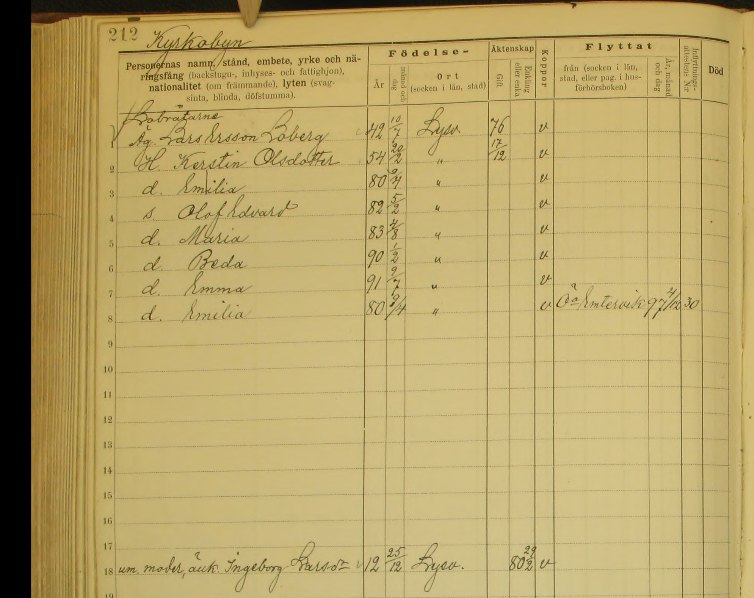 212 Kyrkobyn
Personernas namn, stånd, embete, yrke och nä-
ringsfång (backstugu-, inhyses- och fattighjon),
nationalitet (om främmande), lyten (svag-
sinta, blinda, döfstumma).
Födelse-
År
månad och
Ort
(socken i län, stad)
Äktenskap
Gift
Enkling
eller enka
Koppor
Flyttat
från (socken i län,
stad, eller pag. i hus-
förhörsboken)
År, månad
och dag
Inflyttnings-
attestens N:r
Död
1 Äg. Lars Ersson Loberg 42 10/7 Lysv. 76 v
2 H. Kerstin Olsdotter 54 20/2 " 17/12 v
3 d. Emilia 80 9/4 " v
4 s. Olof Edvard 82 5/2 " v
5 d. Maria 83 4/8 " v
6 d. Beda 90 1/2 " v
7 d. Emma 91 9/7 " v
8 d. Emilia 80 9/4 " v Öa Emtervik 97 /12 30
9
10
11
12
13
14
15
16
17
18 um. moder, änk. Ingeborg Larsdr 12 25/12 Lysv. 80 29/2 v
19